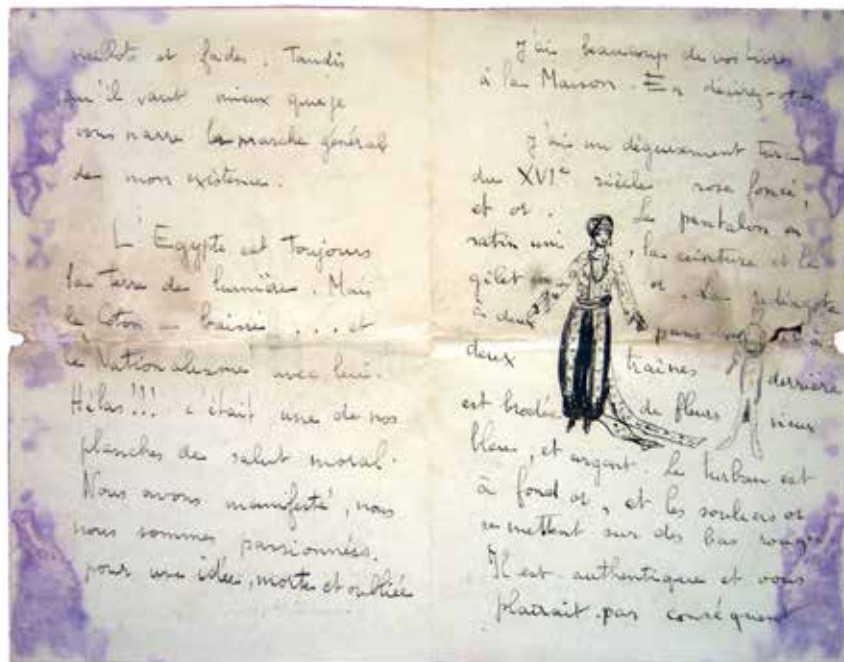 vieillots et fades. Tandis
qu'il vaut mieux que je
vous narre la marche général
de mon existence.
L'Egypte est toujours
la terre de lumière. Mais
le Coton a baissé... et
le Nationalisme avec lui.
Hélas!!! c'était une de nos
planches de salut moral.
Nous avons manifesté, nous
nous sommes passionnées.
pour une idée, morte et oubliée
J'ai beaucoup de vos livres
à la Maison. En désirez-vous.
J'ai un déguisement turc
du XVIe siècle rose foncé,
et or. Le pantalon en
satin uni, la ceinture et le
gilet or. La redingote
à deux pans et à
deux traînes derrière
est brodée de fleurs vieux
bleu, et argent. Le turban est
à fond or, et les souliers or
se mettent sur des bas rouges
Il est authentique et vous
plairait par conséquent